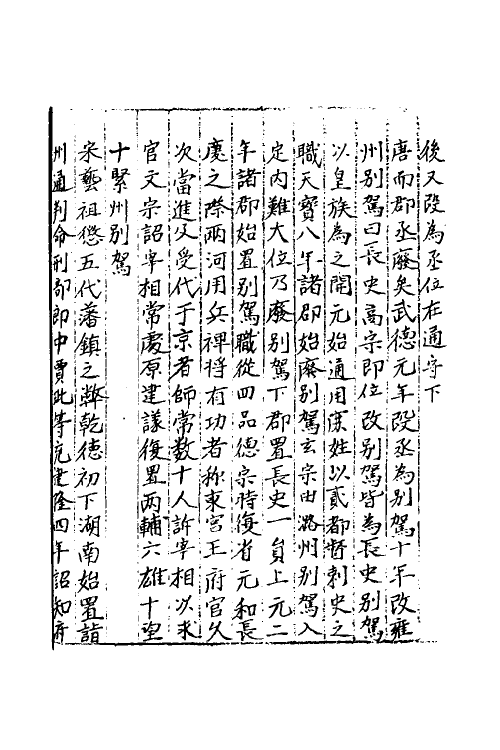 後又改為丞位在通守下
唐而郡丞廢矣武德元年改丞為別駕十年改雍
州別駕曰長史高宗即位改別駕皆為長史別駕
以皇族為之開元始通用庶姓以貳都督刺史之
職天寶八年諸郡始廢別駕玄宗由潞州別駕入
定内難大位乃廢別駕下郡置長史一員上元二
年諸郡始置別駕職從四品德宗時復省元和長
慶之際兩河用兵裨将有功者称東宮王府官久
次當進及受代于京者師常数十人訴宰相以求
官文宗詔宰相常慶原建議復置两輔六雄十望
十緊州別駕
宋藝祖懲五代藩鎮之弊乾德初下湖南始置諸
州通判命刑部郎中賈玭等充建隆四年詔知府